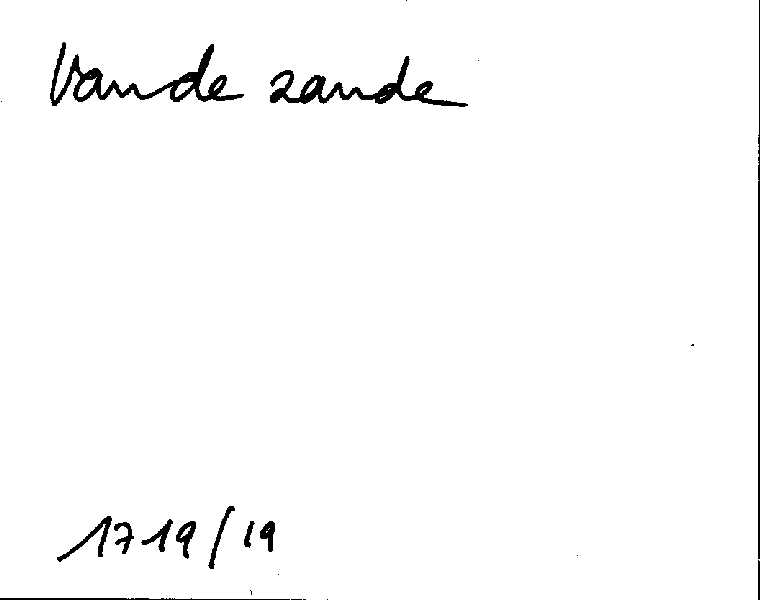 Vande zande
1719/19